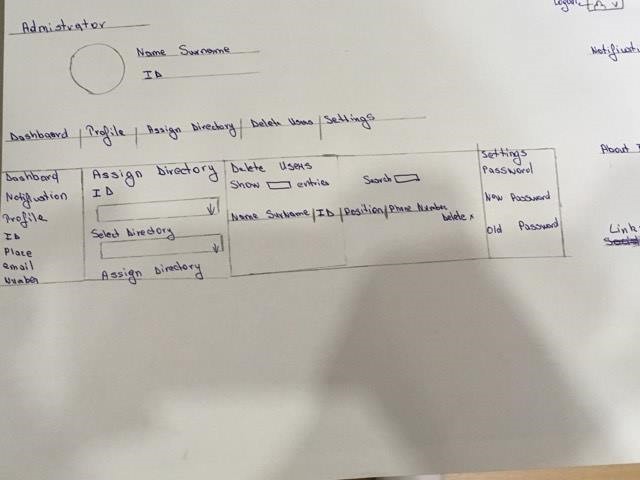 Admistrator
Logout
A v
Name Surname
ID
Dashboard | Profile | Assign Directory | Delete Users | Settings
Dashboard
Notifuation
Profile
ID
Place
email
Number
Assign Directory
ID
Select Directory
Assign Directory
Delete Users
Show entries
Search
Name Surname | ID | Position | Phone Number
Delete x
Settings
Password
New Password
Old Password
About
Link